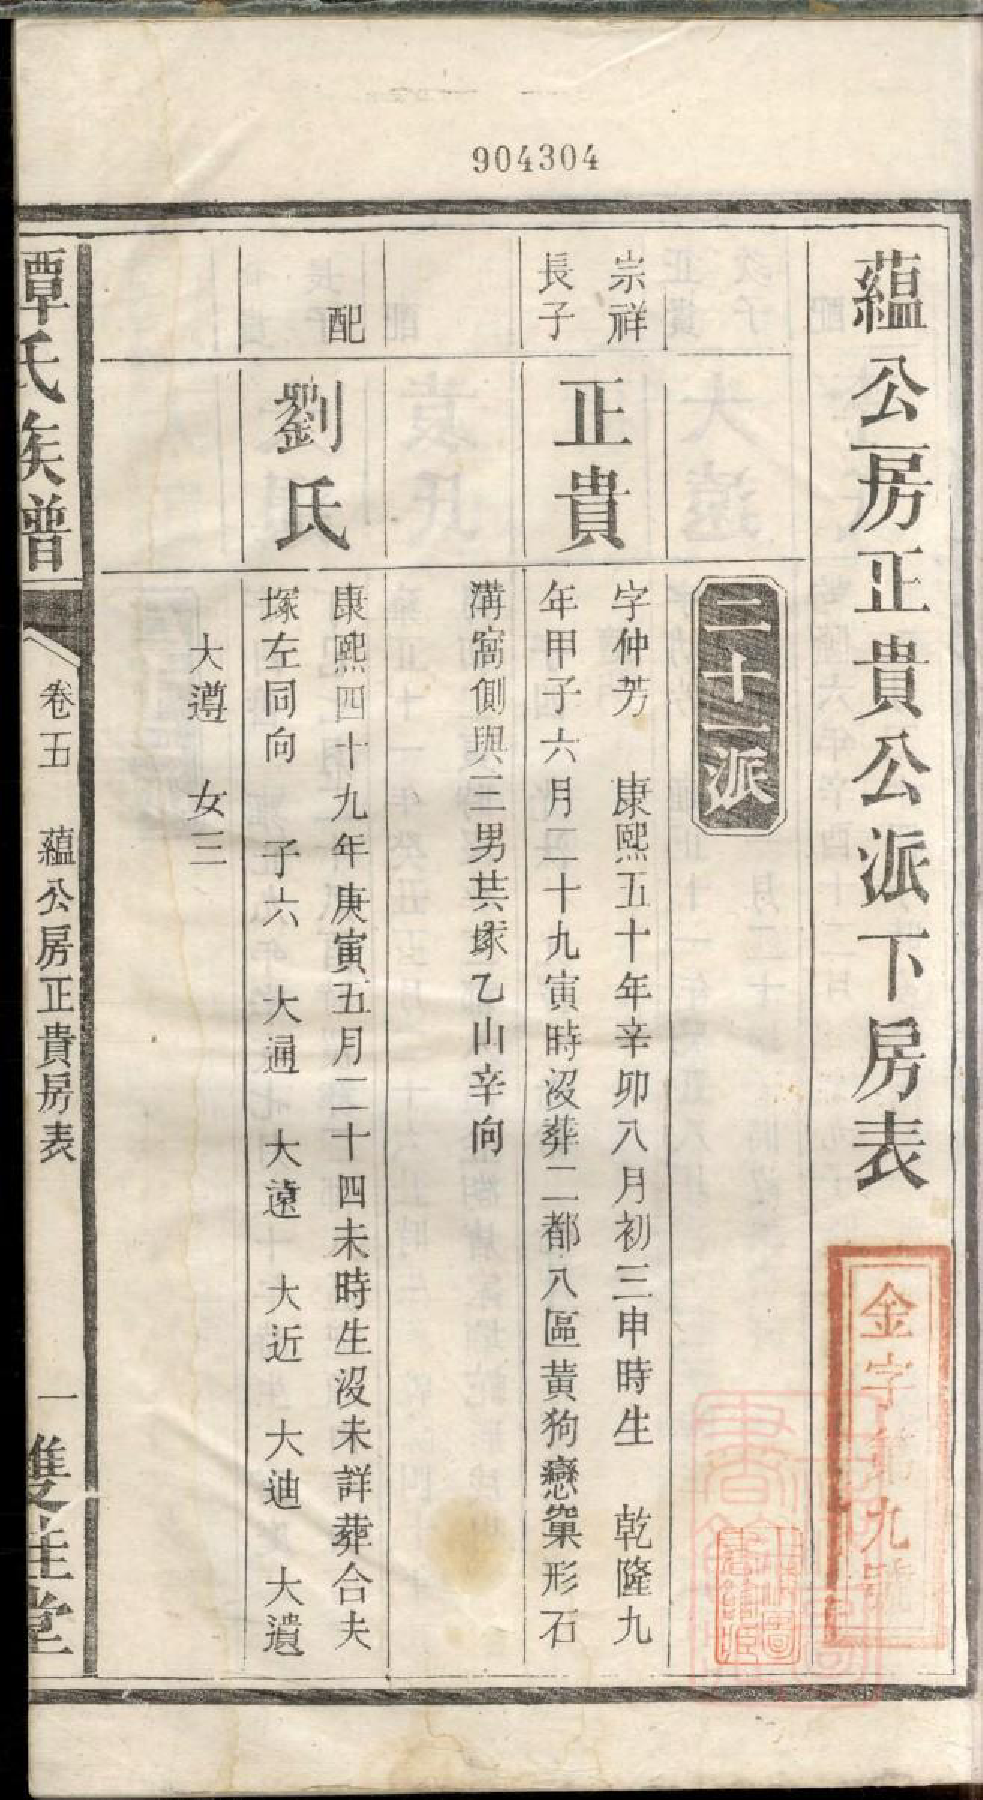 904304
蘊公房正貴公派下房表
金字第九號
二十一派
崇祥
長子
正貴
字仲芳　康熙五十年辛卯八月初三申時生　乾隆九
年甲子六月二十九寅時沒葬二都八區黃狗戀窠形石
溝窩側與三男共塚乙山辛向
配
劉氏
康熙四十九年庚寅五月二十四未時生沒未詳葬合夫
塚左同向　子六　大通　大遠　大近　大迪　大遺
大遵　女三
譚氏族譜
卷五　蘊公房正貴房表
一
雙桂堂